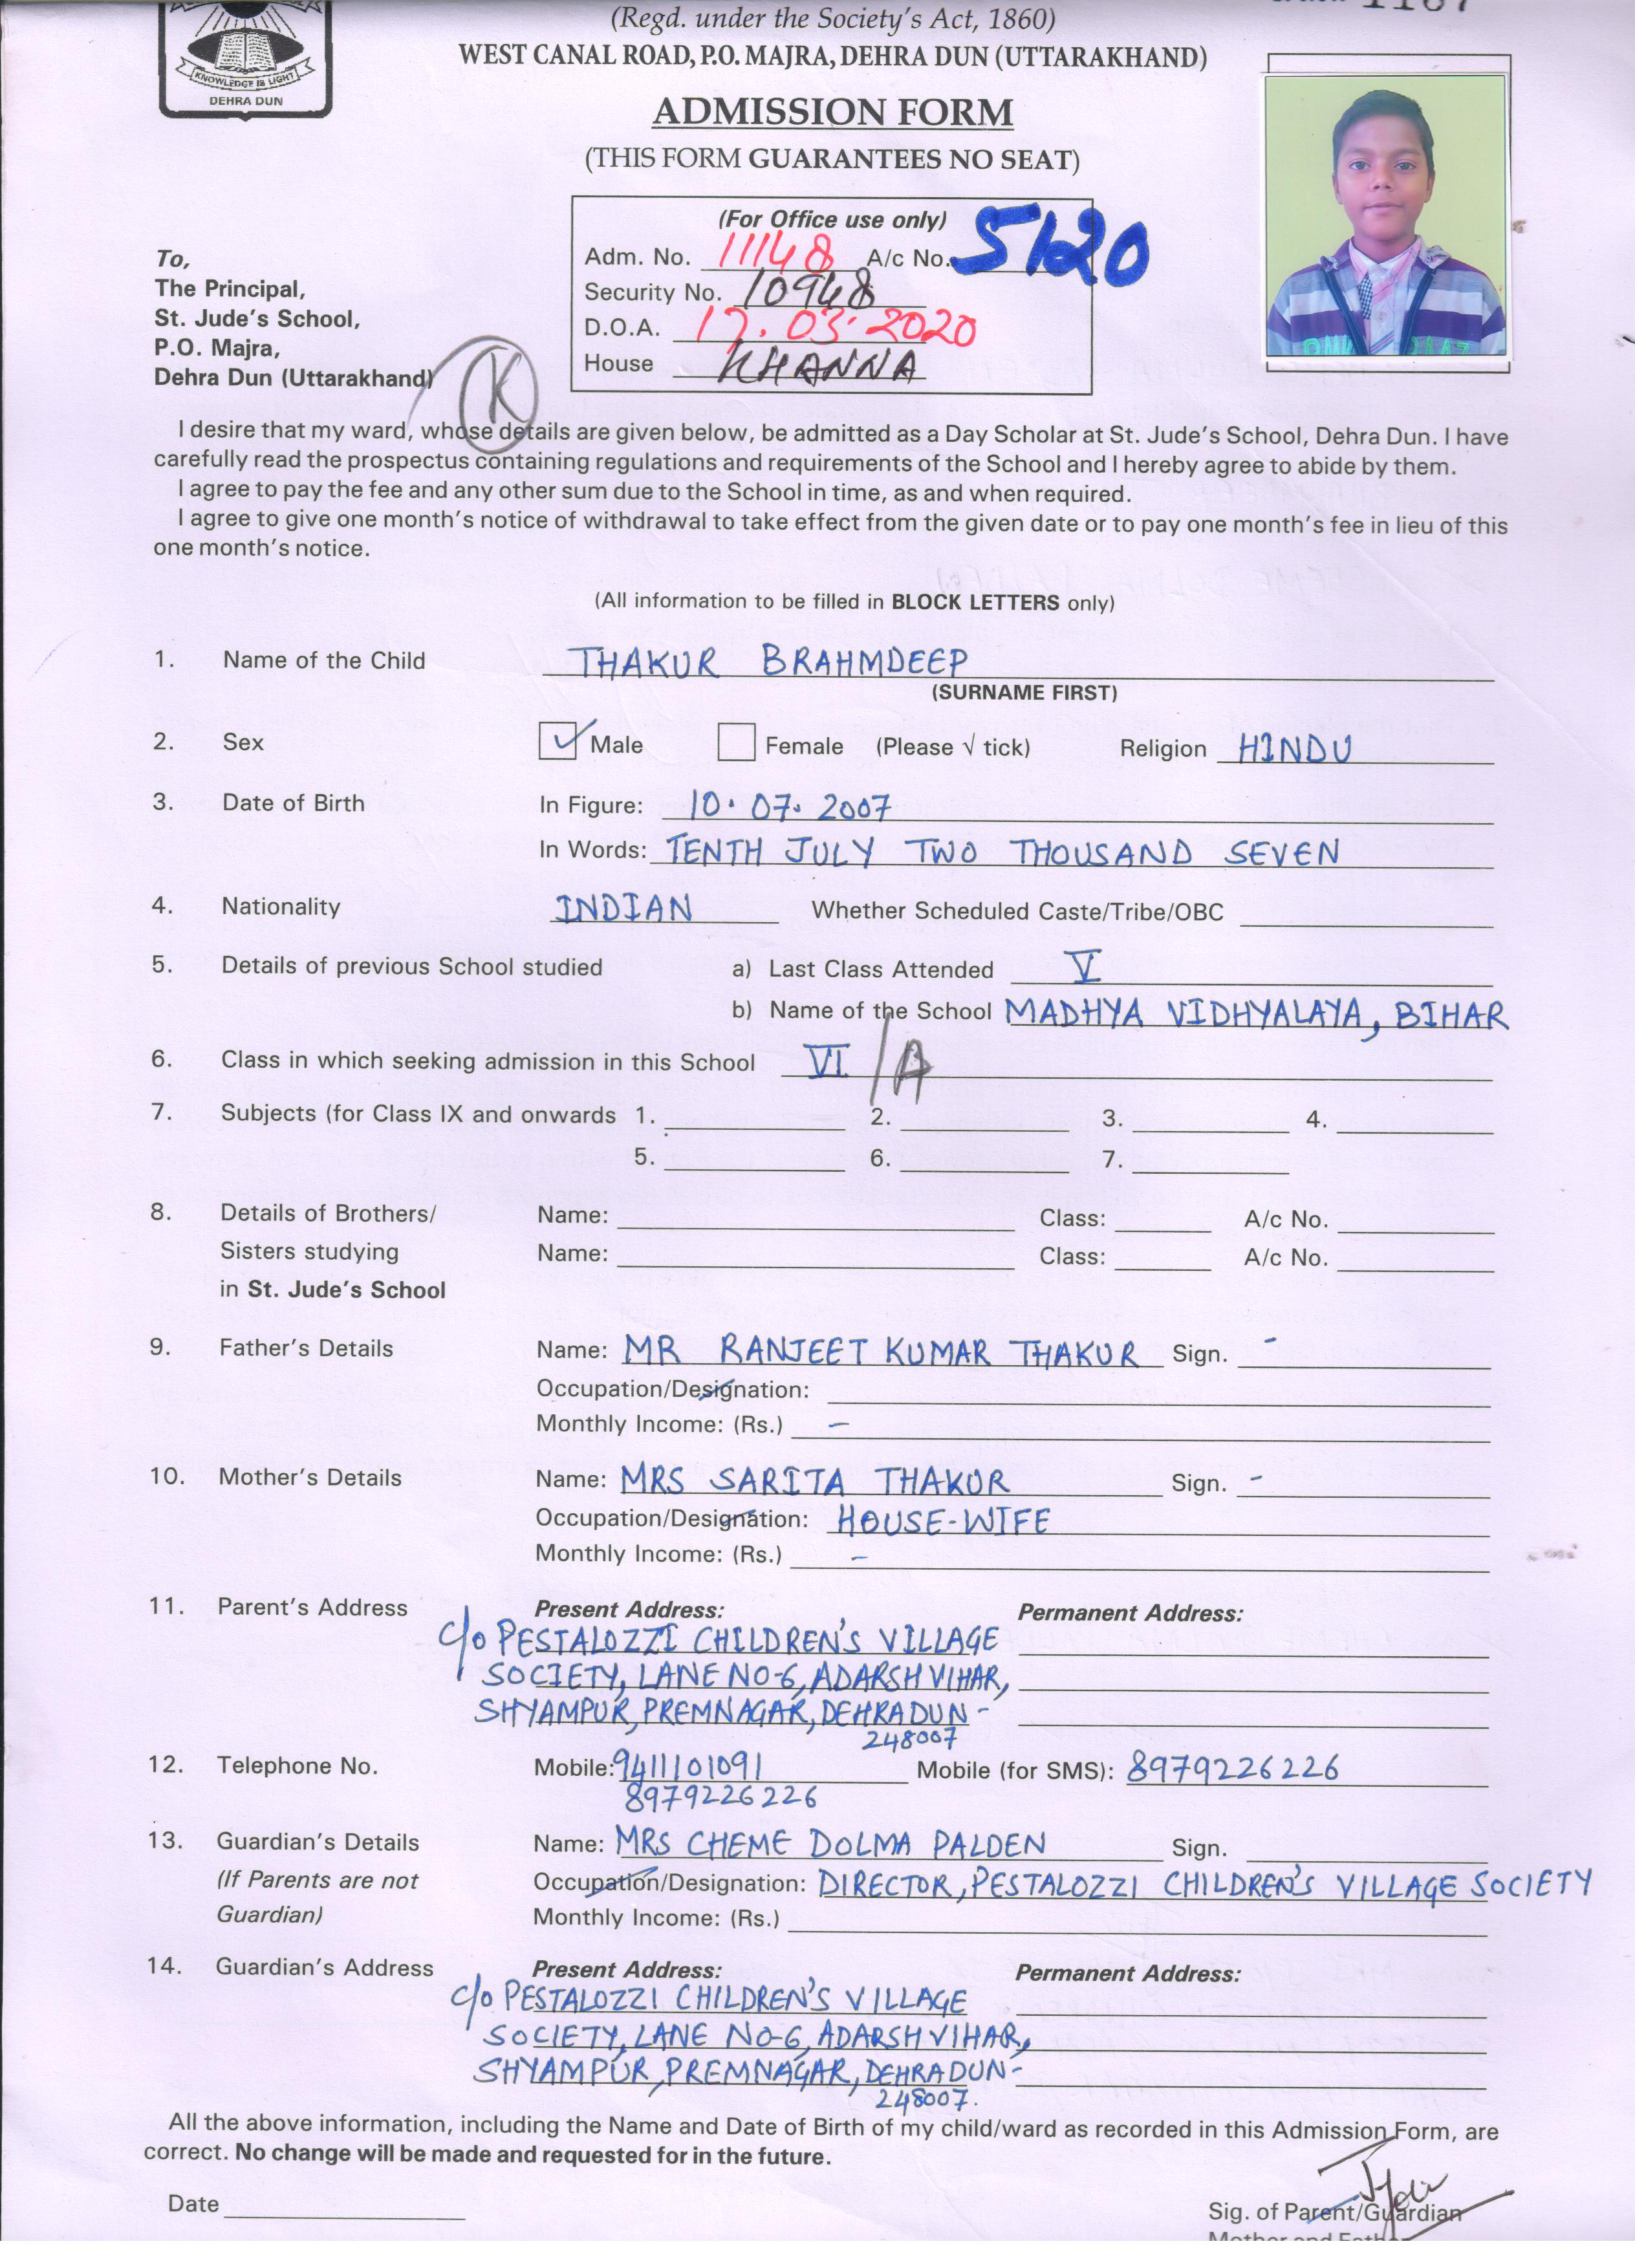 (Regd. under the Society's Act, 1860)
WEST CANAL ROAD, P.O. MAJRA, DEHRA DUN (UTTARAKHAND)
KNOWLEDGE IS LIGHT
DEHRA DUN
ADMISSION FORM
(THIS FORM GUARANTEES NO SEAT)
(For Office use only)
Adm. No. 11148 A/c No. 5120
Security No. 10948
D.O.A. 17.03.2020
House KHANNA
To,
The Principal,
St. Jude's School,
P.O. Majra,
Dehra Dun (Uttarakhand)
K
I desire that my ward, whose details are given below, be admitted as a Day Scholar at St. Jude's School, Dehra Dun. I have
carefully read the prospectus containing regulations and requirements of the School and I hereby agree to abide by them.
I agree to pay the fee and any other sum due to the School in time, as and when required.
I agree to give one month's notice of withdrawal to take effect from the given date or to pay one month's fee in lieu of this
one month's notice.
(All information to be filled in BLOCK LETTERS only)
1. Name of the Child THAKUR BRAHMDEEP
(SURNAME FIRST)
2. Sex Male Female (Please √ tick) Religion HINDU
3. Date of Birth In Figure: 10.07.2007
In Words: TENTH JULY TWO THOUSAND SEVEN
4. Nationality INDIAN Whether Scheduled Caste/Tribe/OBC
5. Details of previous School studied a) Last Class Attended V
b) Name of the School MADHYA VIDHYALAYA, BIHAR
6. Class in which seeking admission in this School VI /A
7. Subjects (for Class IX and onwards 1. 2. 3. 4.
5. 6. 7.
8. Details of Brothers/ Name: Class: A/c No.
Sisters studying Name: Class: A/c No.
in St. Jude's School
9. Father's Details Name: MR RANJEET KUMAR THAKUR Sign. -
Occupation/Designation:
Monthly Income: (Rs.) -
10. Mother's Details Name: MRS SARITA THAKUR Sign. -
Occupation/Designation: HOUSE-WIFE
Monthly Income: (Rs.) -
11. Parent's Address Present Address: Permanent Address:
C/o PESTALOZZI CHILDREN'S VILLAGE
SOCIETY, LANE NO-6, ADARSH VIHAR,
SHYAMPUR, PREMNAGAR, DEHRADUN-
248007
12. Telephone No. Mobile: 9411101091 Mobile (for SMS): 8979226226
8979226226
13. Guardian's Details Name: MRS CHEME DOLMA PALDEN Sign.
(If Parents are not Occupation/Designation: DIRECTOR, PESTALOZZI CHILDREN'S VILLAGE SOCIETY
Guardian) Monthly Income: (Rs.)
14. Guardian's Address Present Address: Permanent Address:
C/o PESTALOZZI CHILDREN'S VILLAGE
SOCIETY, LANE NO-6, ADARSH VIHAR,
SHYAMPUR, PREMNAGAR, DEHRADUN-
248007.
All the above information, including the Name and Date of Birth of my child/ward as recorded in this Admission Form, are
correct. No change will be made and requested for in the future.
Date
Sig. of Parent/Guardian